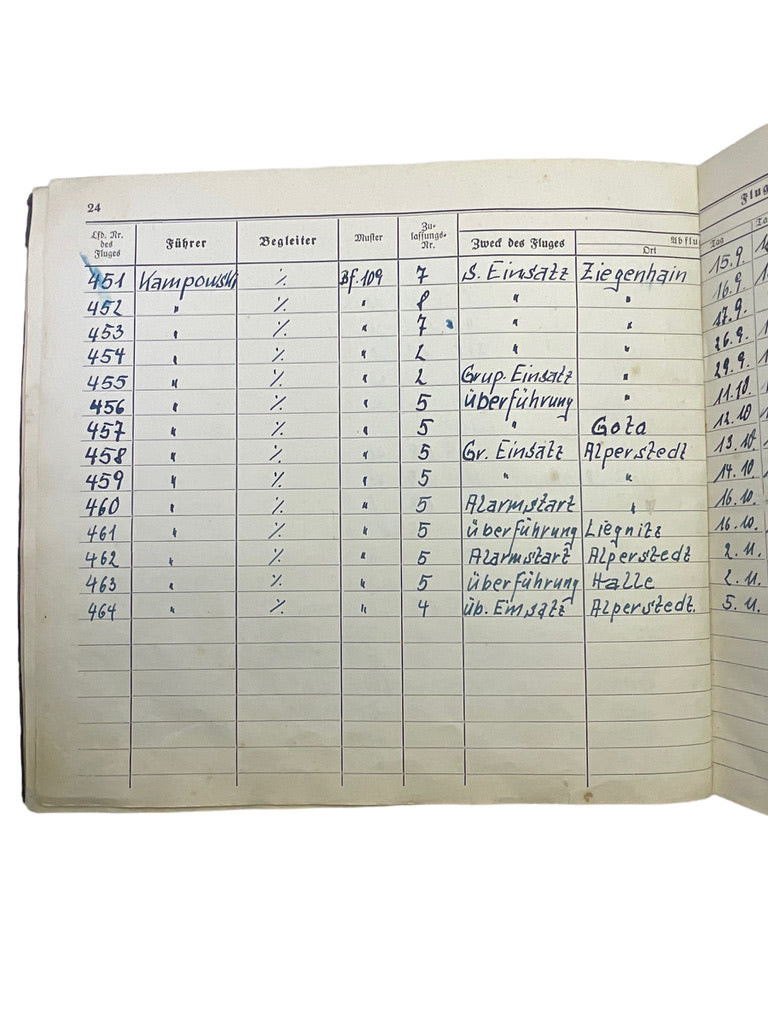 24
Flug
Lfd. Nr. des Fluges Führer Begleiter Muster Zulassungs-Nr. Zweck des Fluges Abflu Ort Tag Ta
451 Kampowski ⁒ Bf. 109 7 S. Einsatz Ziegenhain 15.9.
452 " ⁒ " 8 " " 16.9.
453 " ⁒ " 7 " " 17.9.
454 " ⁒ " 2 " " 26.9.
455 " ⁒ " 2 Grup. Einsatz " 29.9.
456 " ⁒ " 5 überführung " 11.10.
457 " ⁒ " 5 " Gota 12.10
458 " ⁒ " 5 Gr. Einsatz Alperstedt 13.10
459 " ⁒ " 5 " " 14.10
460 " ⁒ " 5 Alarmstart " 16.10.
461 " ⁒ " 5 überführung Liegnitz 16.10.
462 " ⁒ " 5 Alarmstart Alperstedt 2.11.
463 " ⁒ " 5 überführung Halle 2.11.
464 " ⁒ " 4 üb. Einsatz Alperstedt. 5.11.